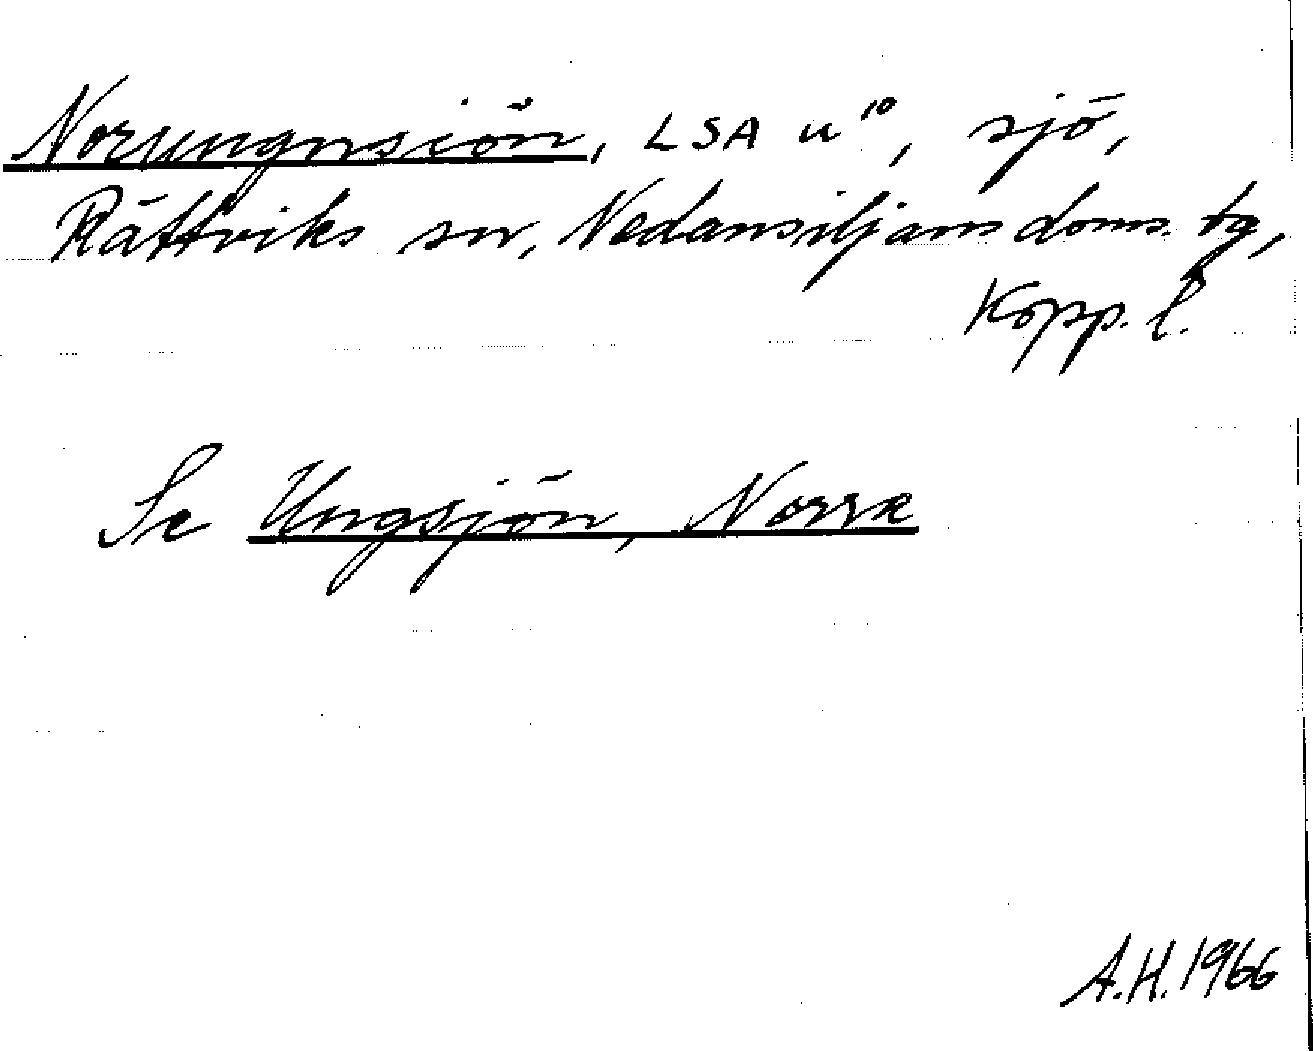 Norrungnsiön, LSA u¹⁰, sjö,
Rättviks sn, Nedansiljans doms. tg,
Kopp. l.
Se Ungsjön, Norra
A.H. 1966